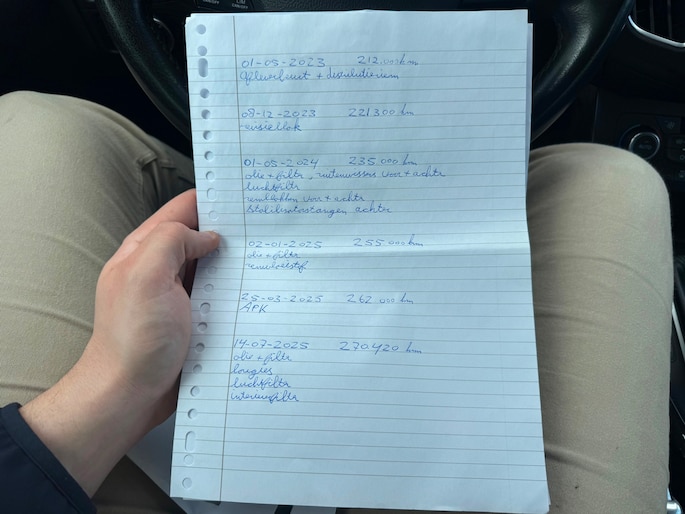 01-05-2023 212.000km
08-12-2023 221300 km
revisieblok
01-05-2024 235.000 km
olie + filtr, ruitenwissers voor + achter
luchtfiltr
remblokken voor + achtr
Stabilisatorstangen achter
02-01-2025 255000 km
olie + filtr
remvloeistof
25-03-2025 262 000 km
APK
14-07-2025 270.420 km
olie + filtr
bougies
luchtfiltr
interieurfiltr